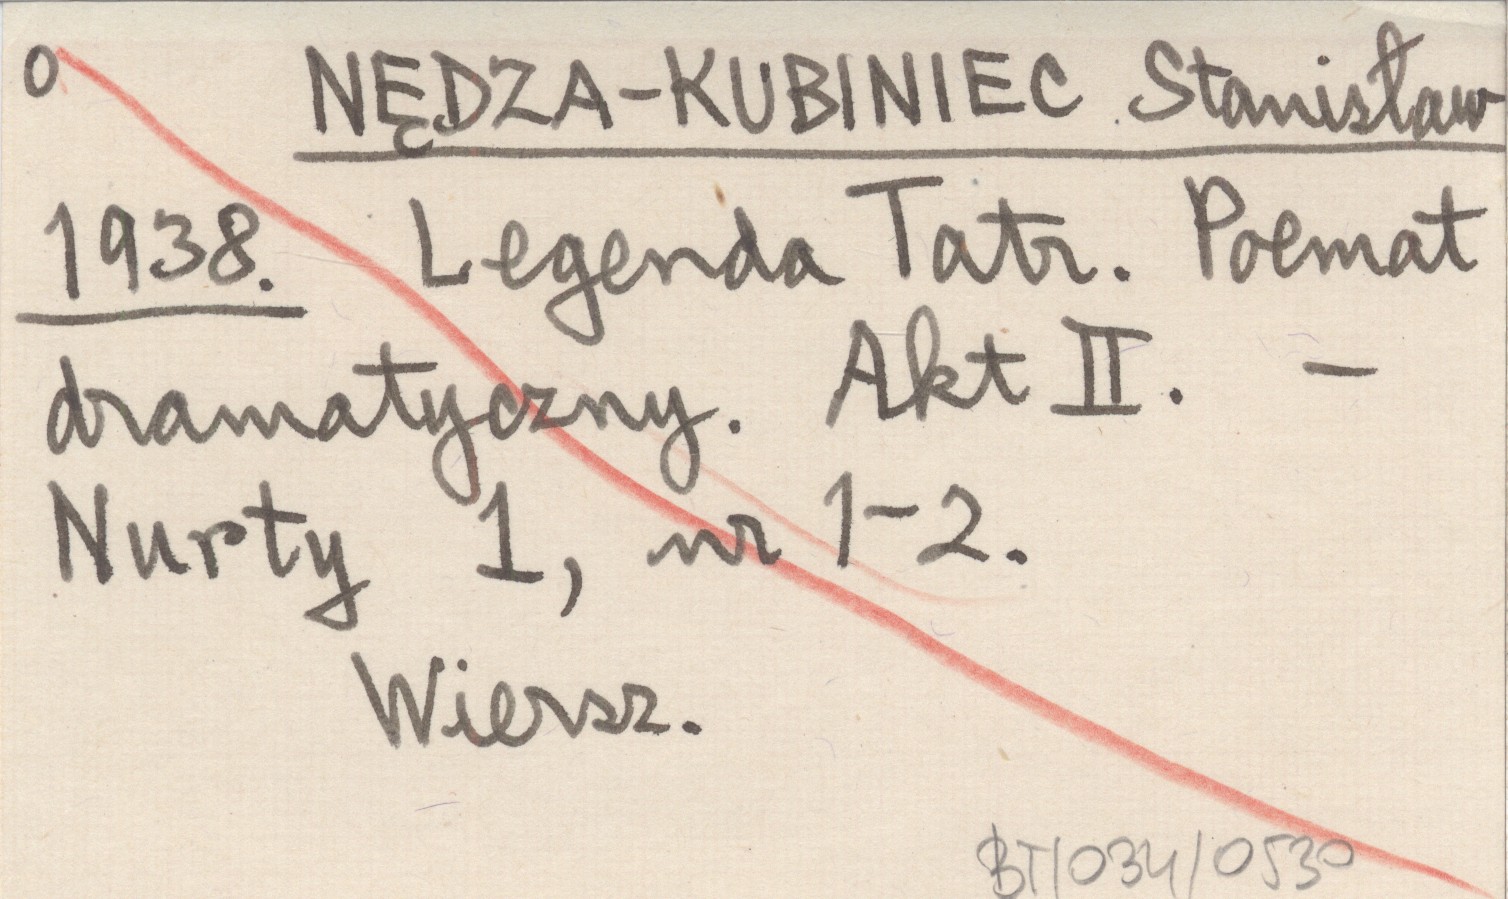 0 NĘDZA-KUBINIEC Stanisław
1938. Legenda Tatr. Poemat
dramatyczny. Akt II. –
Nurty 1, nr 1-2.
Wiersz.
BT/034/0530